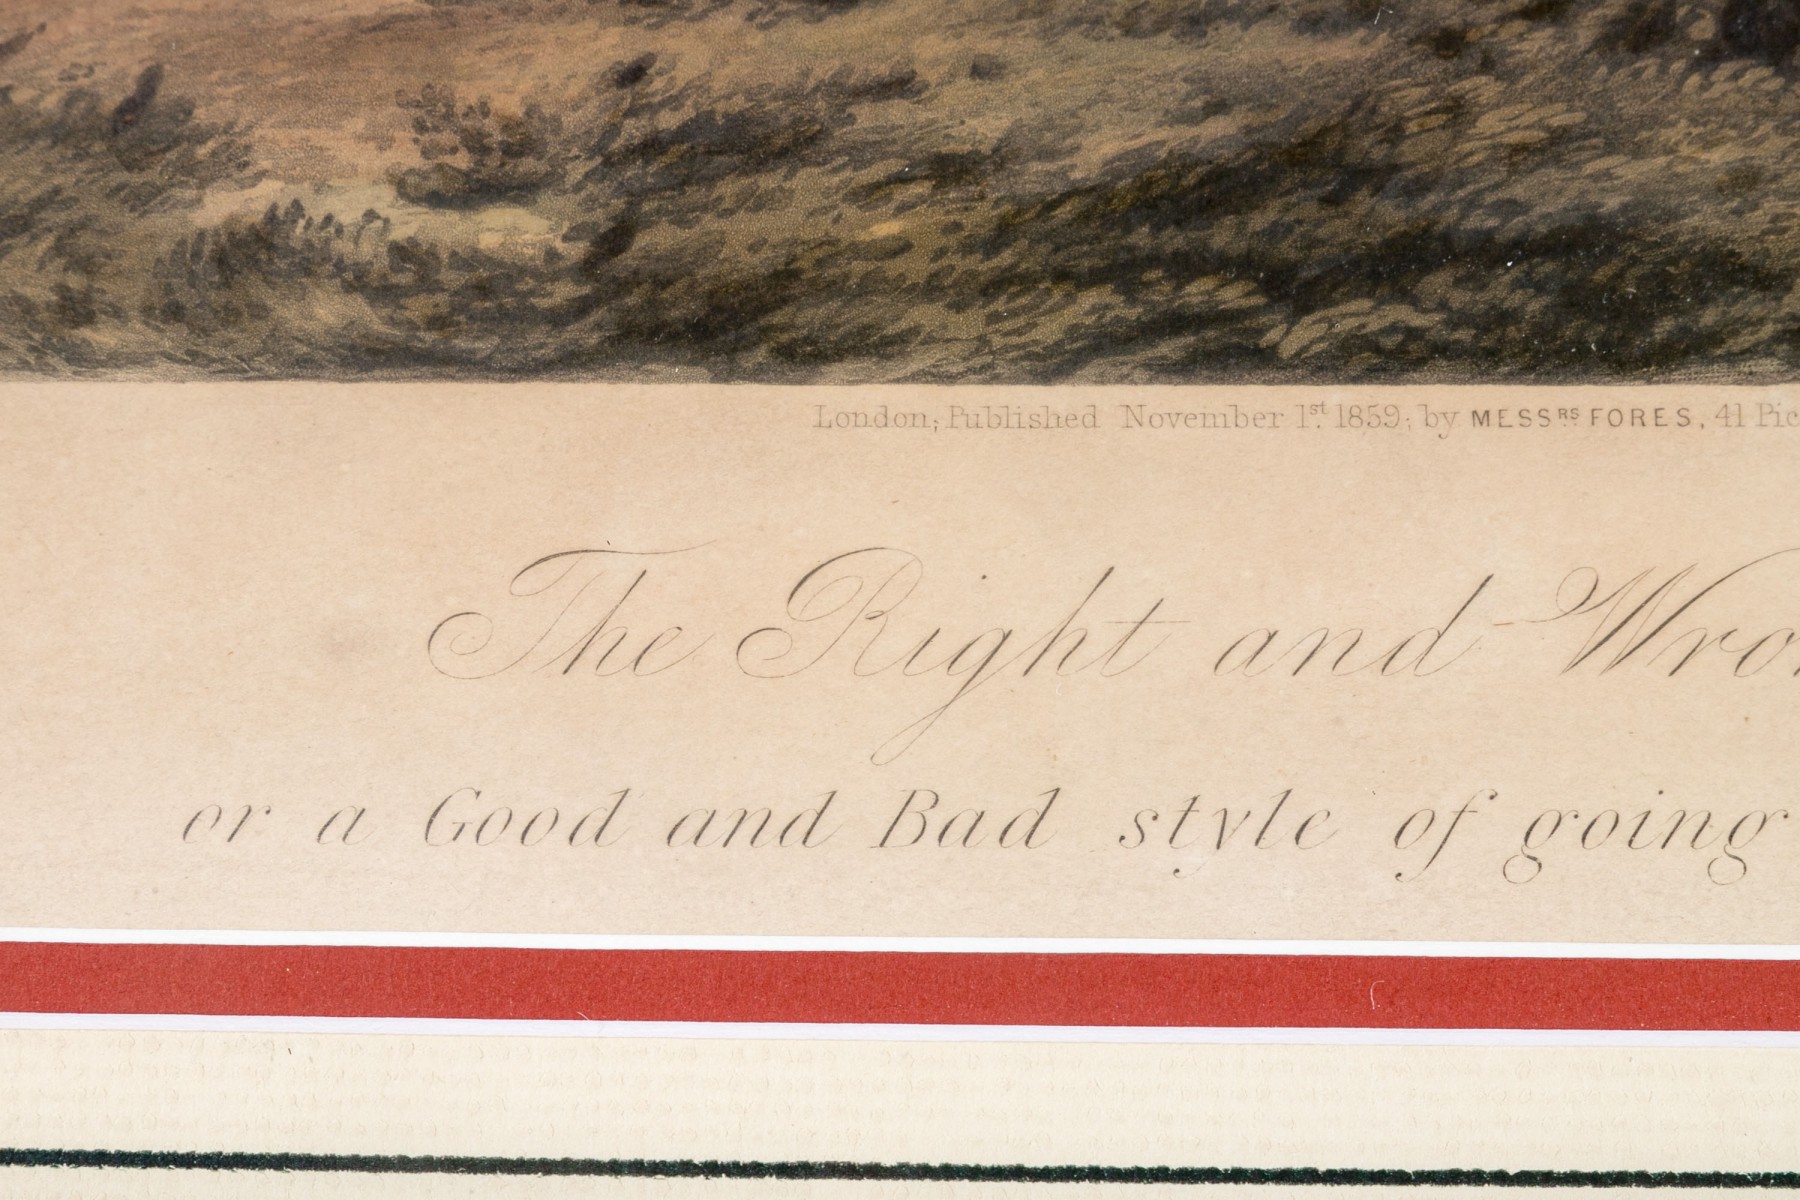 London; Published November 1st 1859; by MESSRS FORES, 41 Pic
The Right and Wro
or a Good and Bad style of going